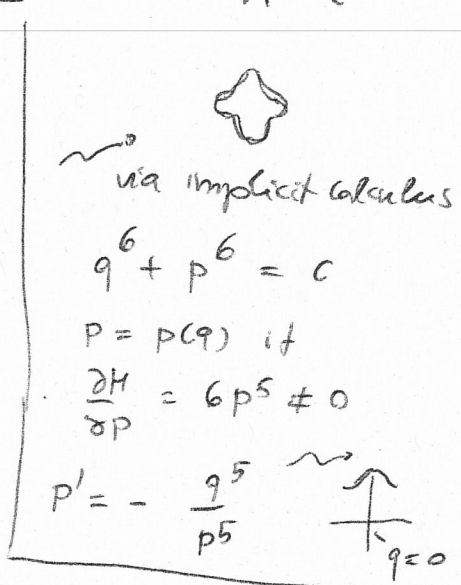 via implicit calculus
q^6 + p^6 = c
p = p(q) if
∂H/∂p = 6p^5 ≠ 0
p' = - q^5/p^5
q=0